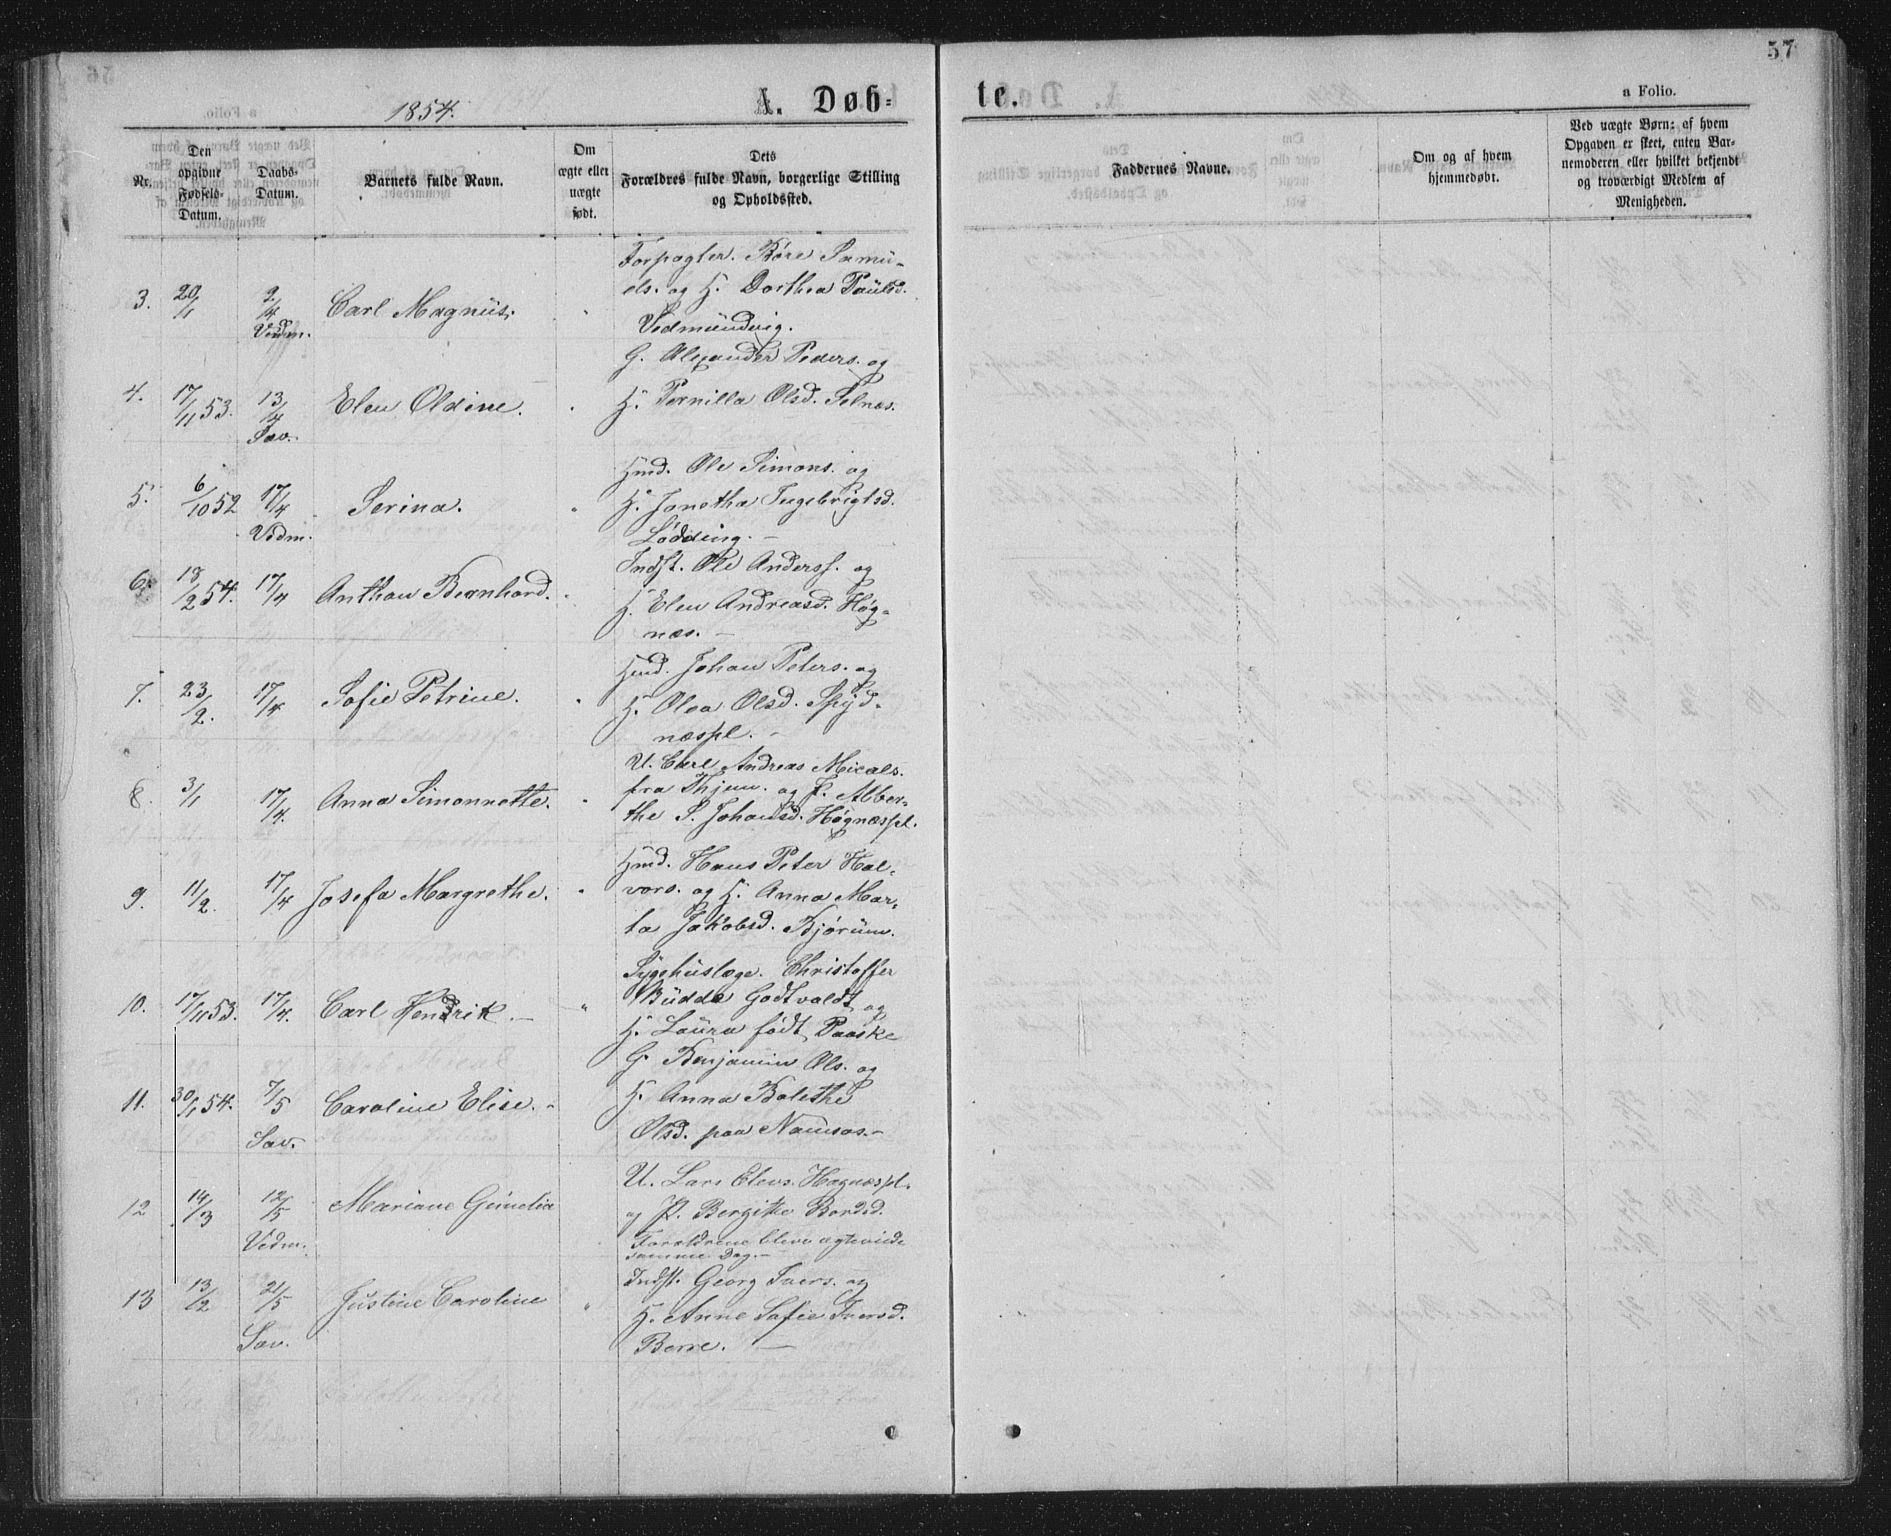 57
1854.
A. Døb-
te.
a Folio.
Nr.
Den opgivne Fødsels-Datum.
Daabs-Datum.
Barnets fulde Navn.
Om ægte eller uægte født.
Dets Forældres fulde Navn, borgerlige Stilling og Opholdssted.
Faddernes Navne.
Om og af hvem hjemmedøbt.
Ved uægte Børn: af hvem Opgaven er skeet, enten Barnemoderen eller hvilket bekjendt og troværdigt Medlem af Menigheden.
Forpagter. Børe Samu-
3. 20/1 2/4 Carl Magnus. els. og H. Dorthea Paulsd.
Vedm. Vedmundvig.
G. Alexander Peders. og
4. 17/11 53. 13/4 Elen Oldine. H. Pernilla Olsd. Selnæs.
Sav.
Hmd. Ole Simons. og
5. 6/10 52 17/4 Serina. H. Jonetha Ingebrigtsd.
Vedm. Lødding.
Indst. Ole Anderss. og
6. 18/2 54. 17/4 Anthon Bernhard. H. Elen Andreasd. Høg-
næs.
Hmd. Johan Peters. og
7. 23/2. 17/4 Sofie Petrine. H. Olea Olsd. Spyd-
næspl.
U. Carl Andreas Micals.
8. 3/1 17/4. Anna Simonnette. fra Thjem. og P. Alber-
the S. Johansd. Høgnæspl.
Hmd. Hans Peter Hal-
9. 11/2. 17/4 Josefa Margrethe. vors. og H. Anna Mar-
ta Jakobsd. Bjørum.
Sygehuslæge. Christoffer
10. 17/11 53. 17/4. Carl Hendrik. Budde Godtvaldt og
H. Laura født Paaske
G. Benjamin Ols. og
11. 30/1 54. 7/5 Caroline Elise. H. Anna Bolethe
Sav. Olsd. paa Namsos.
U. Lars Elevs. Høgnæspl.
12 14/3 12/5 Mariane Gunelia og P. Bergitte Bardsd.
Vedm. Forældrene bleve ægteviede
samme Dag.
Indst. Georg Ivers. og
13 13/2 21/5 Justine Caroline H. Anne Sofie Iversd.
Sav. Borre.